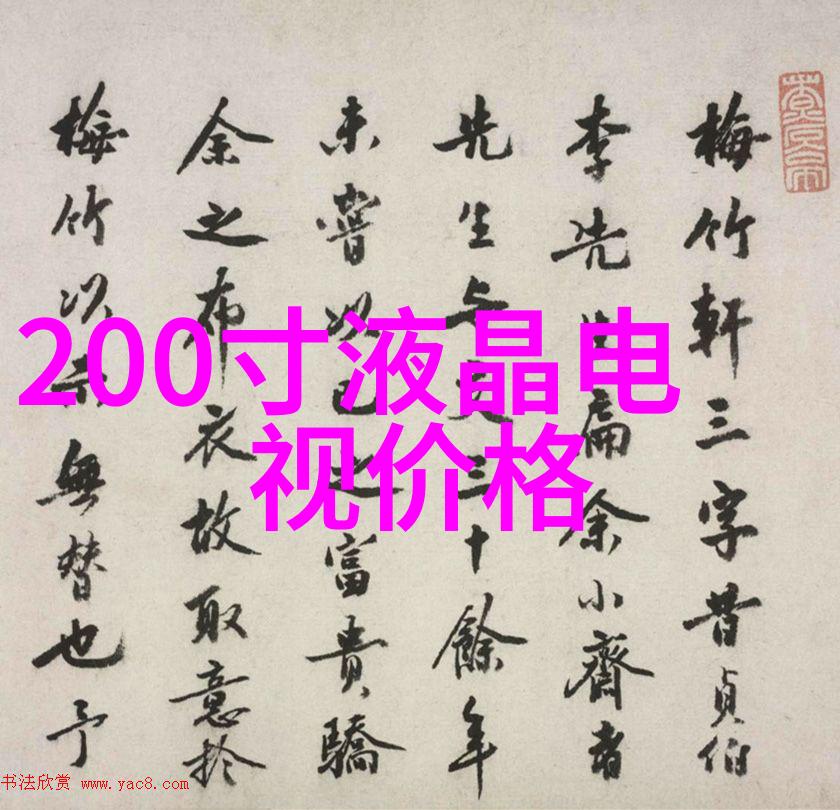 梅竹軒三字昔貞伯
李先生扁余小齋者
先生与交三十餘年
未嘗以己之富貴驕
余之布衣故取意扵
梅竹以示無替也予
200寸液晶电
视价格
书法欣赏 www.yac8.com